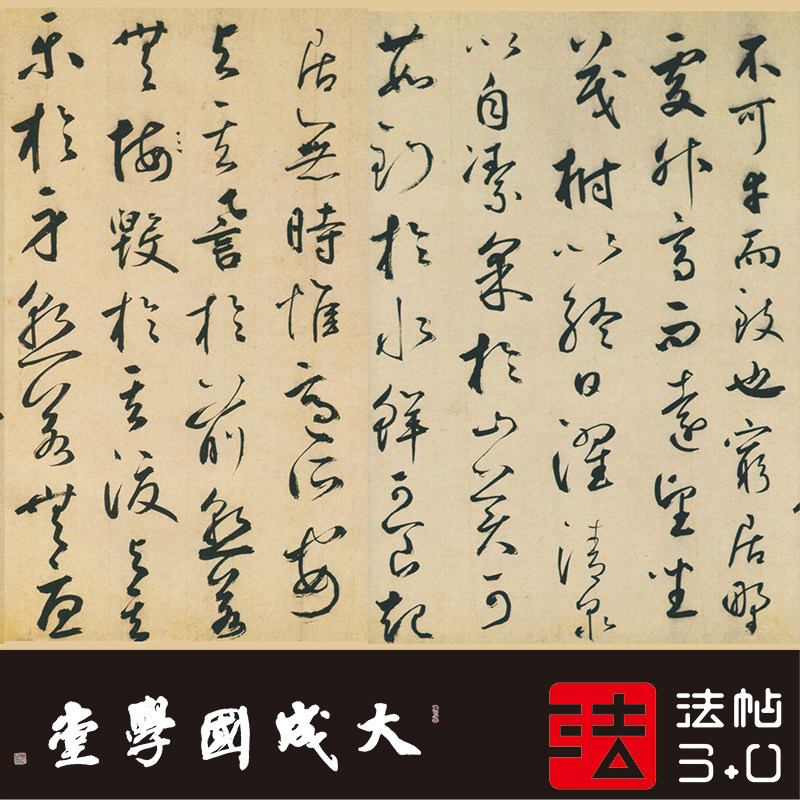 不可幸而致也窮居野
處升高而遠望坐
茂樹以終日濯清泉
以自潔采於山美可
茹釣於水鮮可食起
居無時惟適所安
與其譽於前孰若
無悔毀於其後與其
樂於身孰若無憂
大成國學堂
法
法帖
3.0